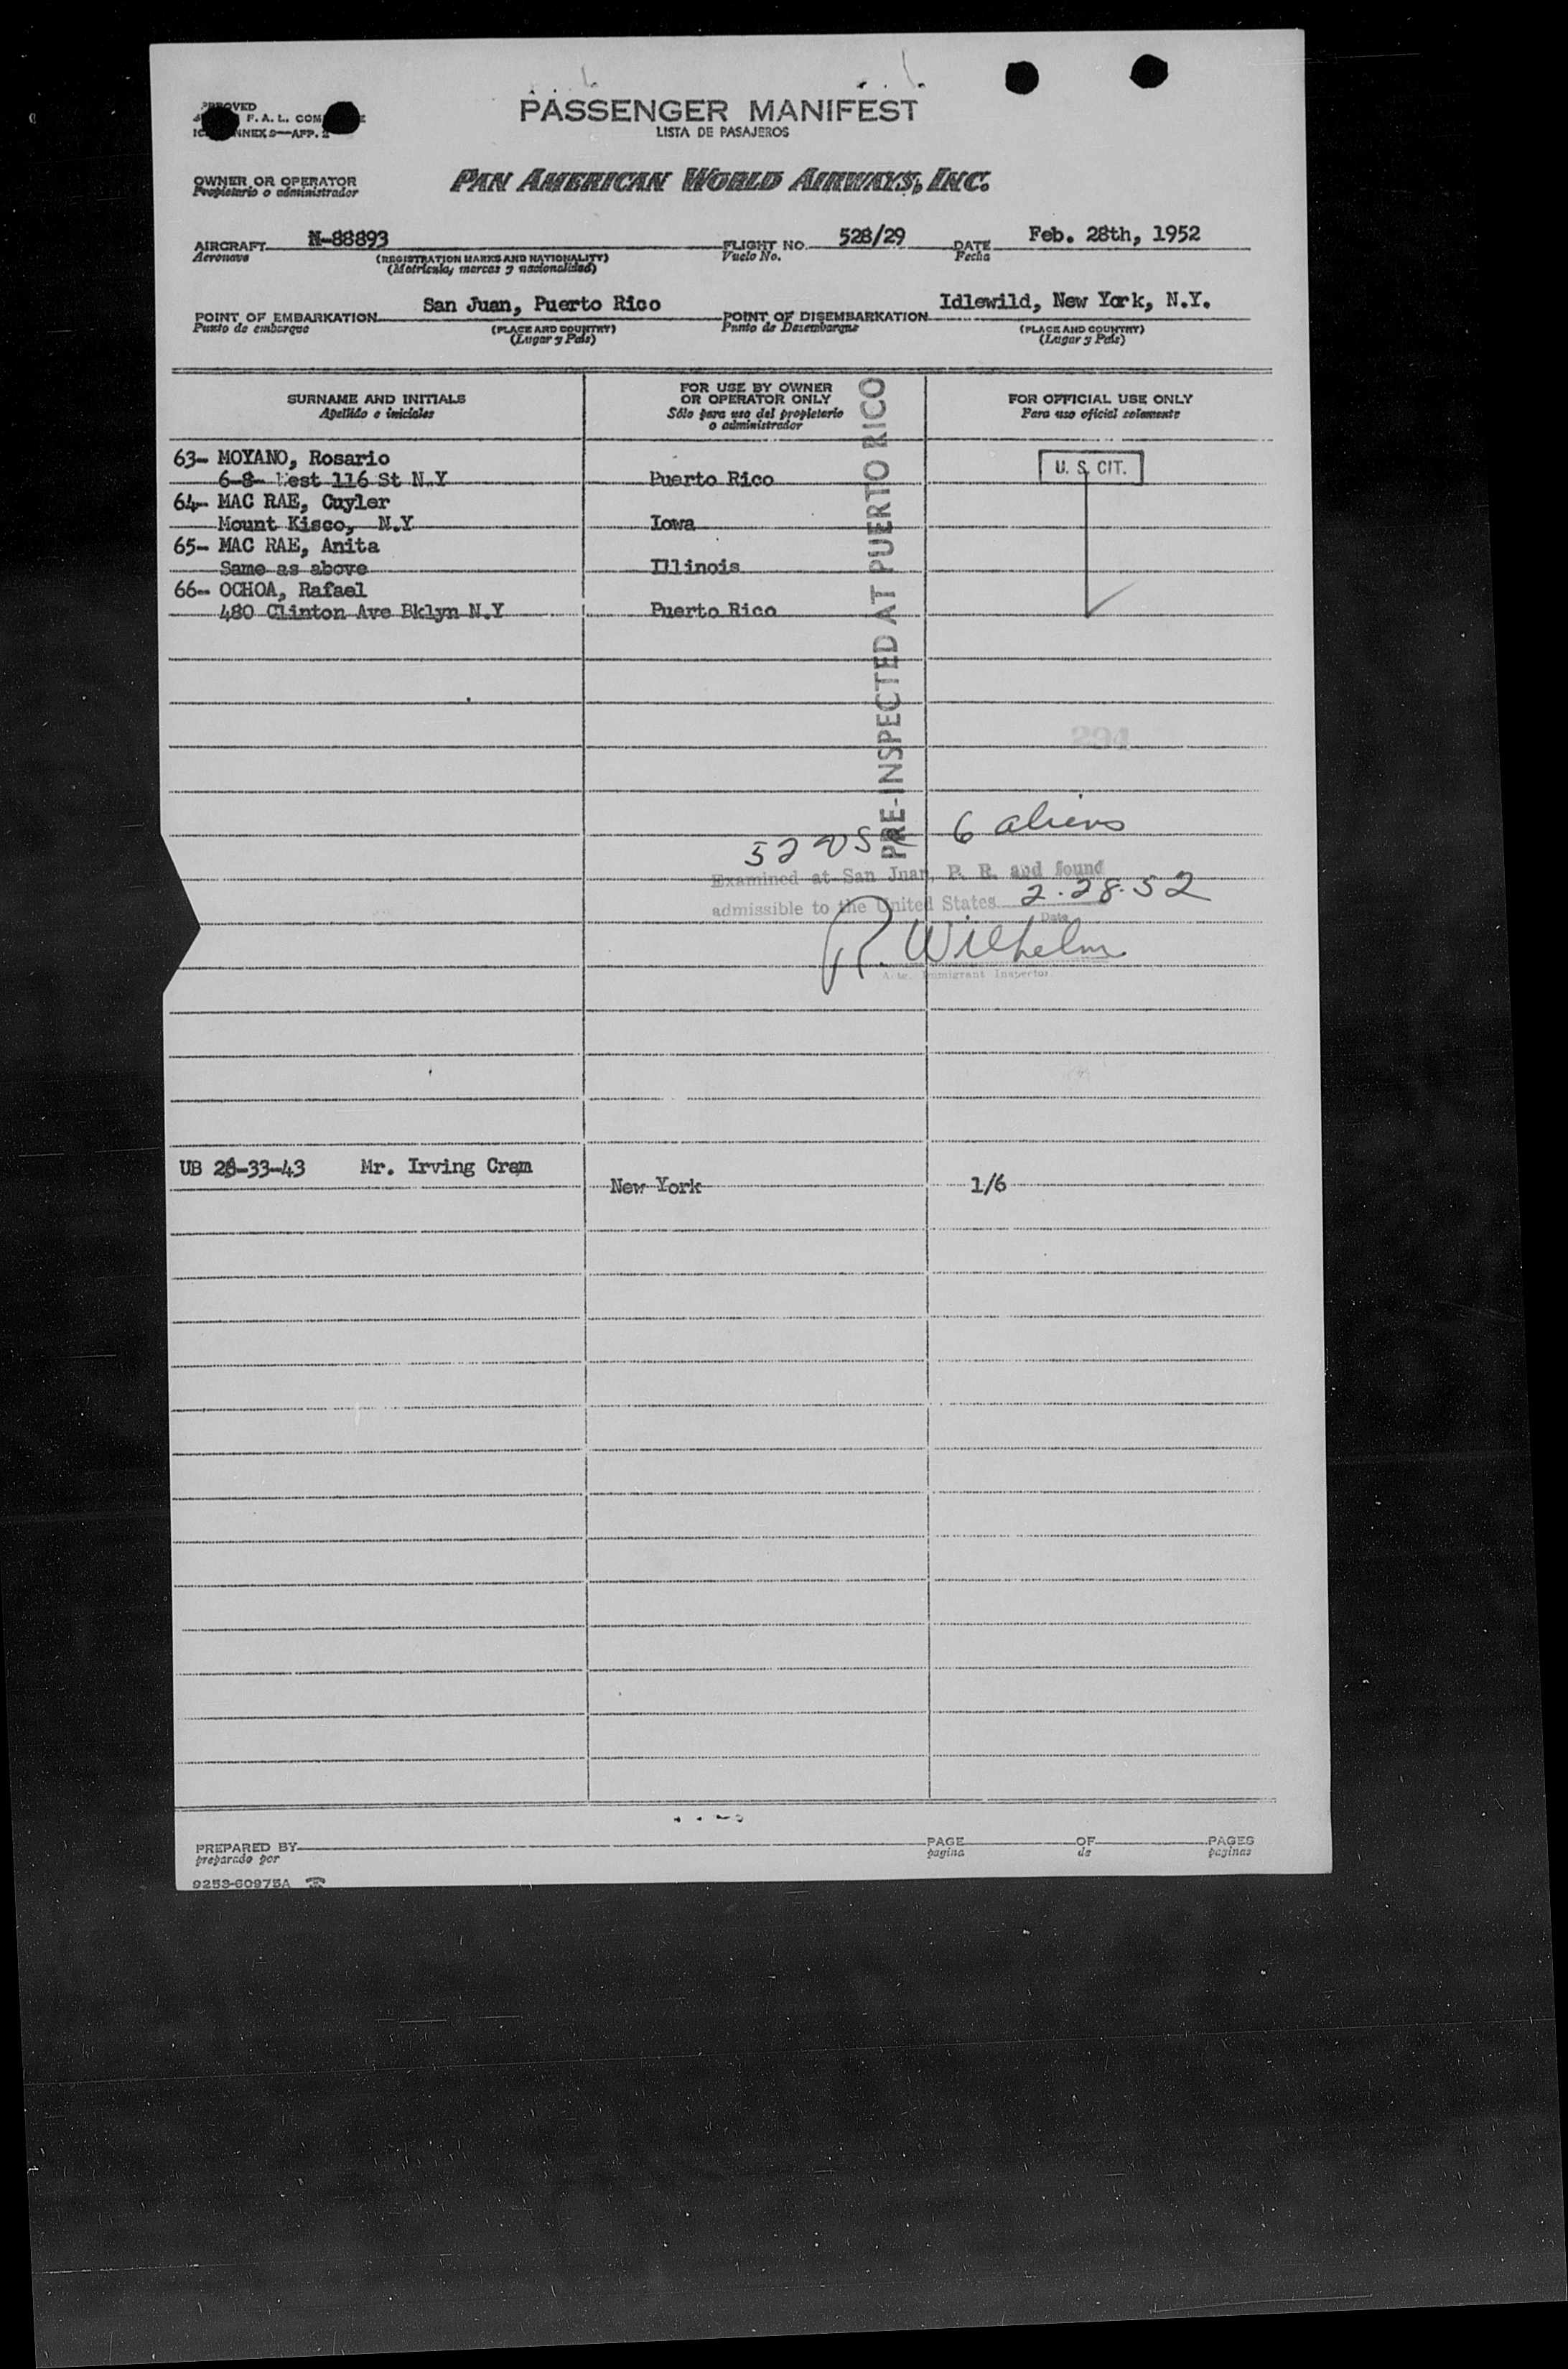 PASSENGER MANIFEST
LISTA DE PASAJEROS
F. A. L. COM
ANNEX 9—APP. 2
OWNER OR OPERATOR
Propietario o administrador
PAN AMERICAN WORLD AIRWAYS, INC.
AIRCRAFT N-88893 FLIGHT NO. 528/29 DATE Feb. 28th, 1952
Aeronave (REGISTRATION MARKS AND NATIONALITY) Vuelo No. Fecha
(Matricula, marcas y nacionalidad)
POINT OF EMBARKATION San Juan, Puerto Rico POINT OF DISEMBARKATION Idlewild, New York, N.Y.
Punto de embarque (PLACE AND COUNTRY) Punto de Desembarque (PLACE AND COUNTRY)
(Lugar y Pais) (Lugar y Pais)
SURNAME AND INITIALS
Apellido e iniciales
FOR USE BY OWNER
OR OPERATOR ONLY
Sólo para uso del propietario
o administrador
FOR OFFICIAL USE ONLY
Para uso oficial solamente
63- MOYANO, Rosario
6-8- West 116 St N.Y Puerto Rico U. S. CIT.
64- MAC RAE, Cuyler
Mount Kisco, N.Y Iowa
65- MAC RAE, Anita
Same as above Illinois
66- OCHOA, Rafael
480 Clinton Ave Bklyn N.Y Puerto Rico
PRE-INSPECTED AT PUERTO RICO
294
52 USC 6 aliens
Examined at San Juan, P. R. and found
admissible to the United States 2.28.52
Date
R. Wilhelm
Immigrant Inspector
UB 28-33-43 Mr. Irving Cram
New York 1/6
PREPARED BY PAGE OF PAGES
preparado por pagina de paginas
9253-60975A